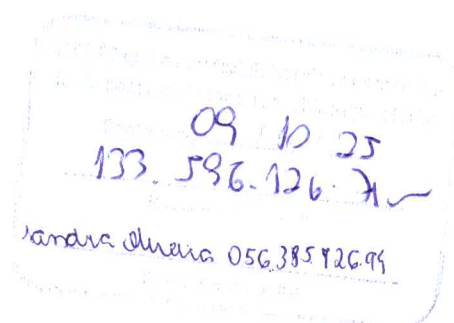 09 10 25
133.596.126.71
Sandra Oliveira 056.385.826.94